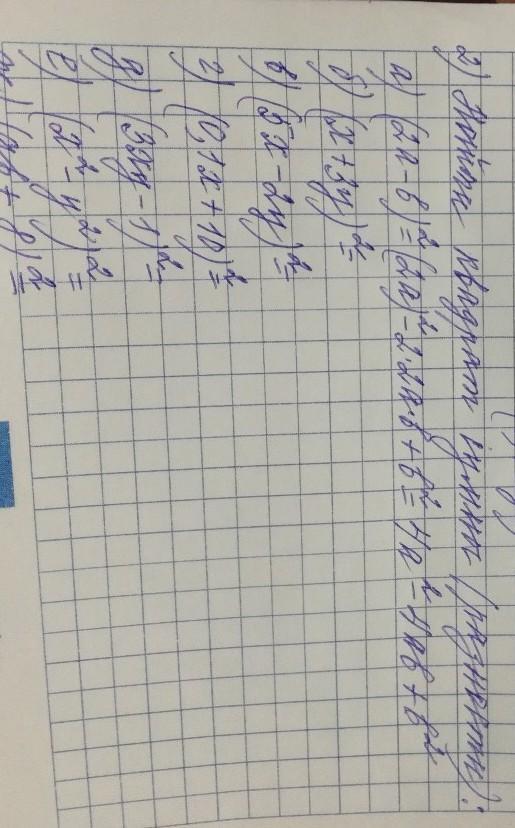 2) Найти квадрат суммы (разности):
а) (2a - b)² = (2a)² - 2·2a·b + b² = 4a² - 4ab + b²
б) (x + 3y)² =
в) (5x - 2y)² =
г) (0,1x + 10)² =
д) (3xy - 1)² =
е) (x² - y²)² =